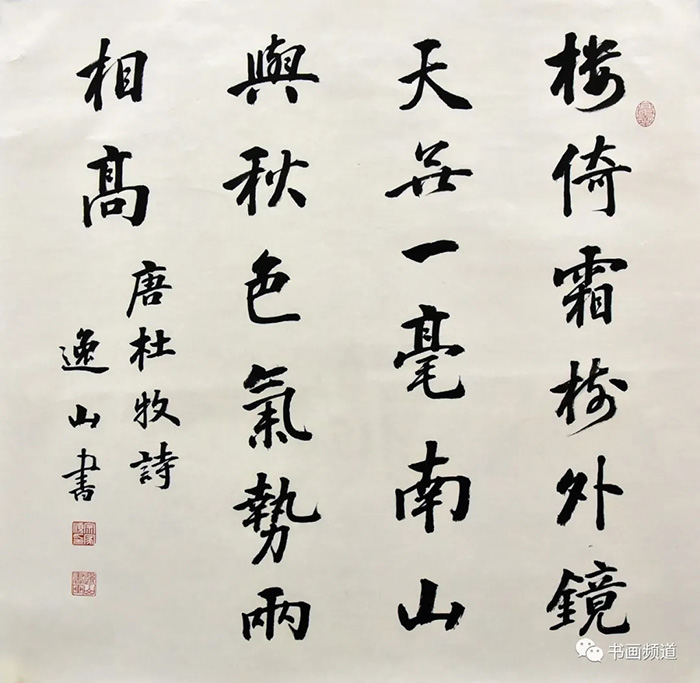 楼倚霜树外镜
天无一毫南山
與秋色氣勢兩
相高
唐杜牧詩
逸山書
书画频道